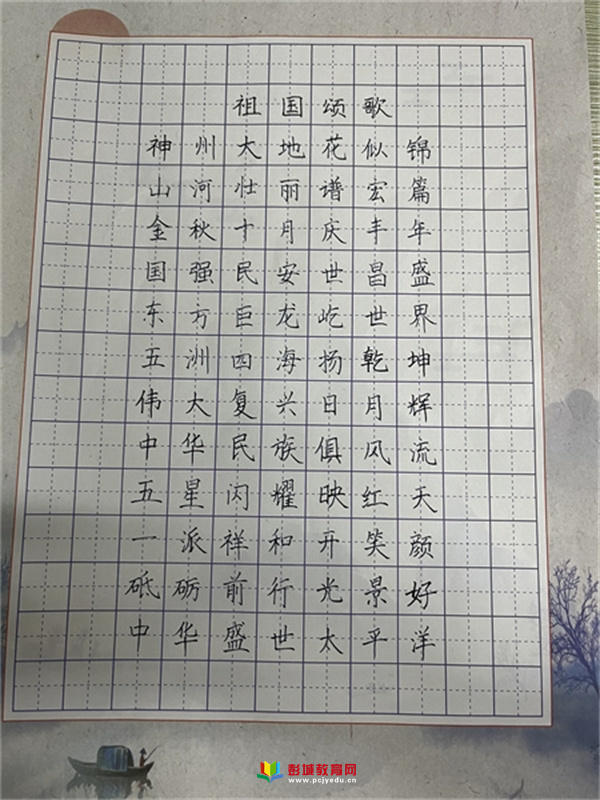 祖国颂歌
神州大地花似锦
山河壮丽谱宏篇
金秋十月庆丰年
国强民安世昌盛
东方巨龙屹世界
五洲四海扬乾坤
伟大复兴日月辉
中华民族俱风流
五星闪耀映红天
一派祥和开笑颜
砥砺前行光景好
中华盛世太平洋
彭城教育网
www.pcjyedu.cn